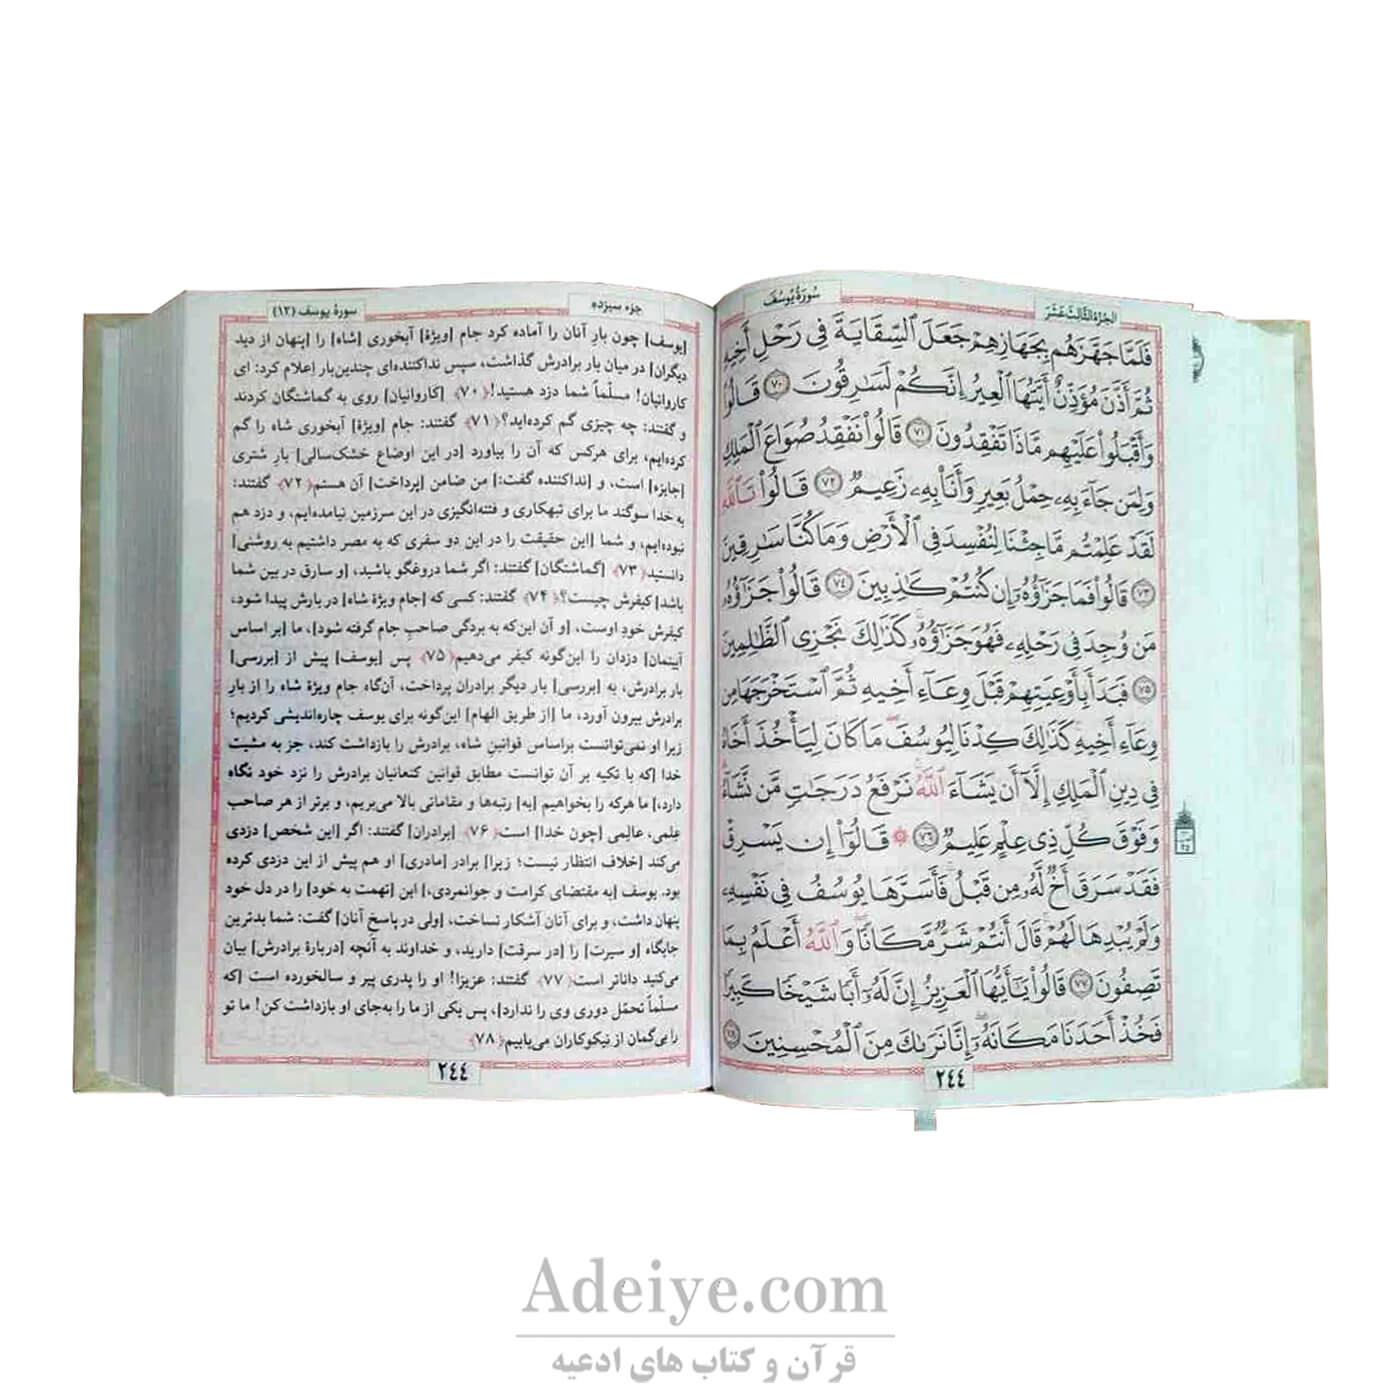 سُورَةُ يُوسُفَ
الجُزءُ الثّالِثَ عَشَرَ
فَلَمَّا جَهَّزَهُم بِجَهَازِهِمْ جَعَلَ ٱلسِّقَايَةَ فِى رَحْلِ أَخِيهِ
ثُمَّ أَذَّنَ مُؤَذِّنٌ أَيَّتُهَا ٱلْعِيرُ إِنَّكُمْ لَسَٰرِقُونَ ٧٠ قَالُوا۟
وَأَقْبَلُوا۟ عَلَيْهِم مَّاذَا تَفْقِدُونَ ٧١ قَالُوا۟ نَفْقِدُ صُوَاعَ ٱلْمَلِكِ
وَلِمَن جَآءَ بِهِۦ حِمْلُ بَعِيرٍ وَأَنَا۠ بِهِۦ زَعِيمٌ ٧٢ قَالُوا۟ تَٱللَّهِ
لَقَدْ عَلِمْتُم مَّا جِئْنَا لِنُفْسِدَ فِى ٱلْأَرْضِ وَمَا كُنَّا سَٰرِقِينَ
٧٣ قَالُوا۟ فَمَا جَزَٰٓؤُهُۥٓ إِن كُنتُمْ كَٰذِبِينَ ٧٤ قَالُوا۟ جَزَٰٓؤُهُۥ
مَن وُجِدَ فِى رَحْلِهِۦ فَهُوَ جَزَٰٓؤُهُۥ كَذَٰلِكَ نَجْزِى ٱلظَّٰلِمِينَ
٧٥ فَبَدَأَ بِأَوْعِيَتِهِمْ قَبْلَ وِعَآءِ أَخِيهِ ثُمَّ ٱسْتَخْرَجَهَا مِن
وِعَآءِ أَخِيهِ كَذَٰلِكَ كِدْنَا لِيُوسُفَ مَا كَانَ لِيَأْخُذَ أَخَاهُ
فِى دِينِ ٱلْمَلِكِ إِلَّآ أَن يَشَآءَ ٱللَّهُ نَرْفَعُ دَرَجَٰتٍ مَّن نَّشَآءُ
وَفَوْقَ كُلِّ ذِى عِلْمٍ عَلِيمٌ ٧٦ ۞ قَالُوٓا۟ إِن يَسْرِقْ
فَقَدْ سَرَقَ أَخٌ لَّهُۥ مِن قَبْلُ فَأَسَرَّهَا يُوسُفُ فِى نَفْسِهِۦ
وَلَمْ يُبْدِهَا لَهُمْ قَالَ أَنتُمْ شَرٌّ مَّكَانًا وَٱللَّهُ أَعْلَمُ بِمَا
تَصِفُونَ ٧٧ قَالُوا۟ يَٰٓأَيُّهَا ٱلْعَزِيزُ إِنَّ لَهُۥٓ أَبًا شَيْخًا كَبِيرًا
فَخُذْ أَحَدَنَا مَكَانَهُۥٓ إِنَّا نَرَىٰكَ مِنَ ٱلْمُحْسِنِينَ ٧٨
٢٤٤
جزء سیزده
سورهٔ یوسف (۱۲)
[یوسف] چون بارِ آنان را آماده کرد جام [ویژهٔ] آبخوری [شاه] را [پنهان از دید
دیگران] در میان بار برادرش گذاشت، سپس نداکننده‌ای چندین‌بار اِعلام کرد: ای
کاروانیان! مسلّماً شما دزد هستید! ﴿۷۰﴾ [کاروانیان] روی به گماشتگان کردند
و گفتند: چه چیزی گم کرده‌اید؟ ﴿۷۱﴾ گفتند: جام [ویژهٔ] آبخوری شاه را گم
کرده‌ایم، برای هرکس که آن را بیاورد [در این اوضاع خشک‌سالی] بارِ شتری
[جایزه] است، و [نداکننده گفت:] من ضامن [پرداخت] آن هستم ﴿۷۲﴾ گفتند:
به خدا سوگند ما برای تبهکاری و فتنه‌انگیزی در این سرزمین نیامده‌ایم، و دزد هم
نبوده‌ایم، و شما [این حقیقت را در این دو سفری که به مصر داشتیم به روشنی]
دانستید ﴿۷۳﴾ [گماشتگان] گفتند: اگر شما دروغگو باشید، [و سارق در بین شما
باشد] کیفرش چیست؟ ﴿۷۴﴾ گفتند: کسی که [جام ویژهٔ شاه] در بارش پیدا شود،
کیفرش خودِ اوست، [و آن این‌که به بردگی صاحبِ جام گرفته شود]، ما [بر اساس
آیینمان] دزدان را این‌گونه کیفر می‌دهیم ﴿۷۵﴾ پس [یوسف] پیش از [بررسی]
بار برادرش، به [بررسی] بار دیگر برادران پرداخت، آن‌گاه جام ویژهٔ شاه را از بارِ
برادرش بیرون آورد، ما [از طریق الهام] این‌گونه برای یوسف چاره‌اندیشی کردیم؛
زیرا او نمی‌توانست براساس قوانینِ شاه، برادرش را بازداشت کند، جز به مشیت
خدا [که با تکیه بر آن توانست مطابق قوانین کنعانیان برادرش را نزد خود نگاه
دارد،] ما هرکه را بخواهیم [به] رتبه‌ها و مقاماتی بالا می‌بریم، و برتر از هر صاحب
عِلمی، عالِمی [چون خدا] است ﴿۷۶﴾ [برادران] گفتند: اگر [این شخص] دزدی
می‌کند [خلاف انتظار نیست؛ زیرا] برادر [مادری] او هم پیش از این دزدی کرده
بود. یوسف [به مقتضای کرامت و جوانمردی،] این [تهمت به خود] را در دل خود
پنهان داشت، و برای آنان آشکار نساخت، [ولی در پاسخ آنان] گفت: شما بدترین
جایگاه [و سیرت] را [در سرقت] دارید، و خداوند به آنچه [دربارهٔ برادرش] بیان
می‌کنید داناتر است ﴿۷۷﴾ گفتند: عزیزا! او را پدری پیر و سالخورده است [که
مسلّماً تحمّل دوری وی را ندارد]، پس یکی از ما را به‌جای او بازداشت کن! ما تو
را بی‌گمان از نیکوکاران می‌یابیم ﴿۷۸﴾
٢٤٤
Adeiye.com
قرآن و کتاب های ادعیه